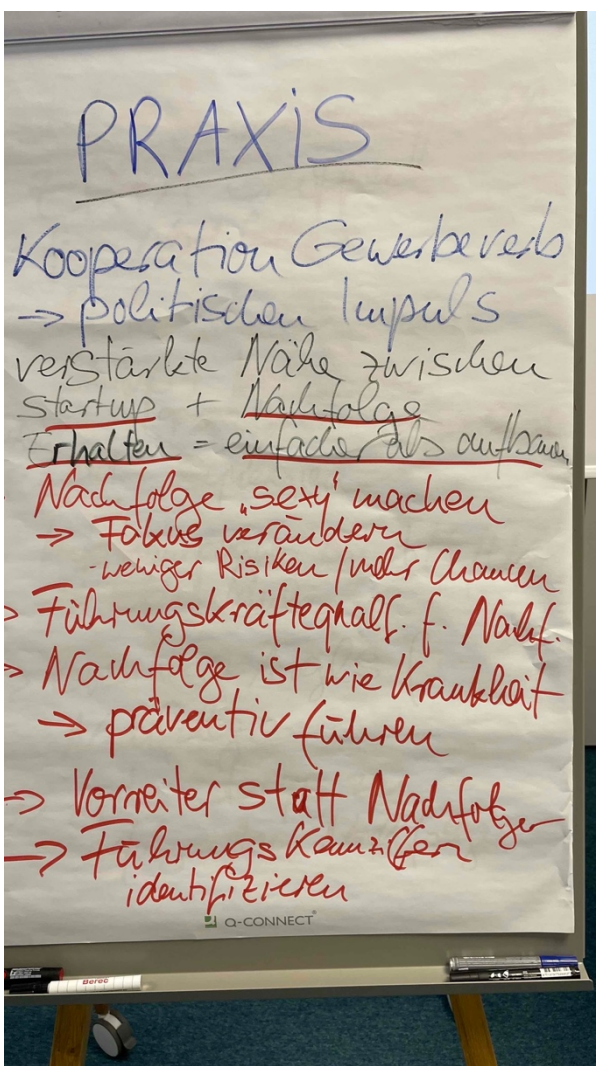 PRAXiS
Kooperation Gewerbeverb
→ politischen Impuls
verstärkte Nähe zwischen
Startup + Nachfolge
Erhalten = einfacher als aufbauen
Nachfolge „sexy" machen
→ Fokus verändern
- weniger Risiken / mehr Chancen
→ Führungskräftequalf. f. Nachf.
→ Nachfolge ist wie Krankheit
→ präventiv führen
→ Vorreiter statt Nachfolger
→ Führungs Kennziffern
identifizieren
Q-CONNECT
Berec